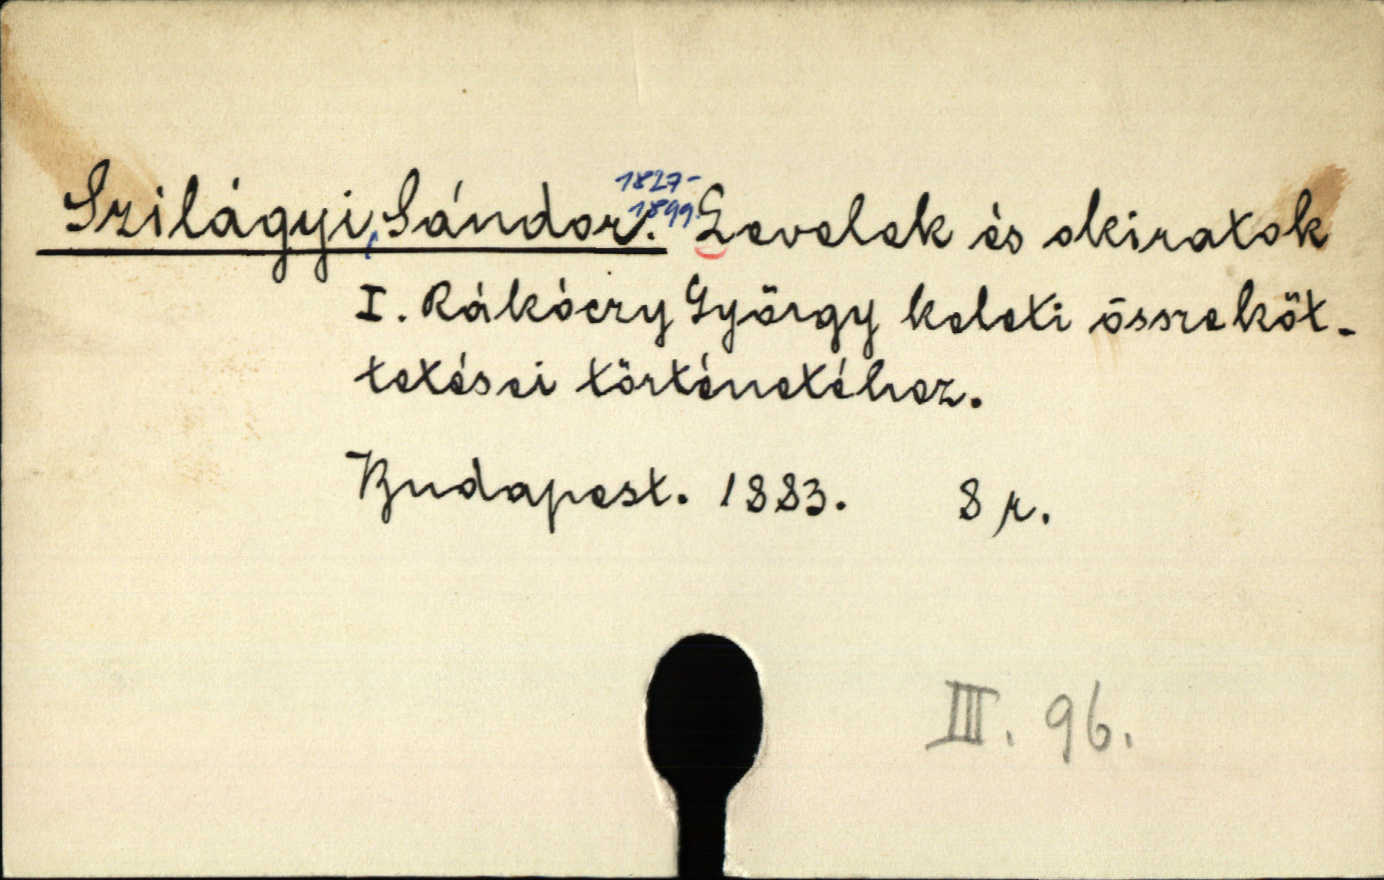 Szilágyi, Sándor. 1827-1899. Levelek és okiratok
I. Rákóczy György keleti összeköt-
tetései történetéhez.
Budapest. 1883. 8 r.
III. 96.